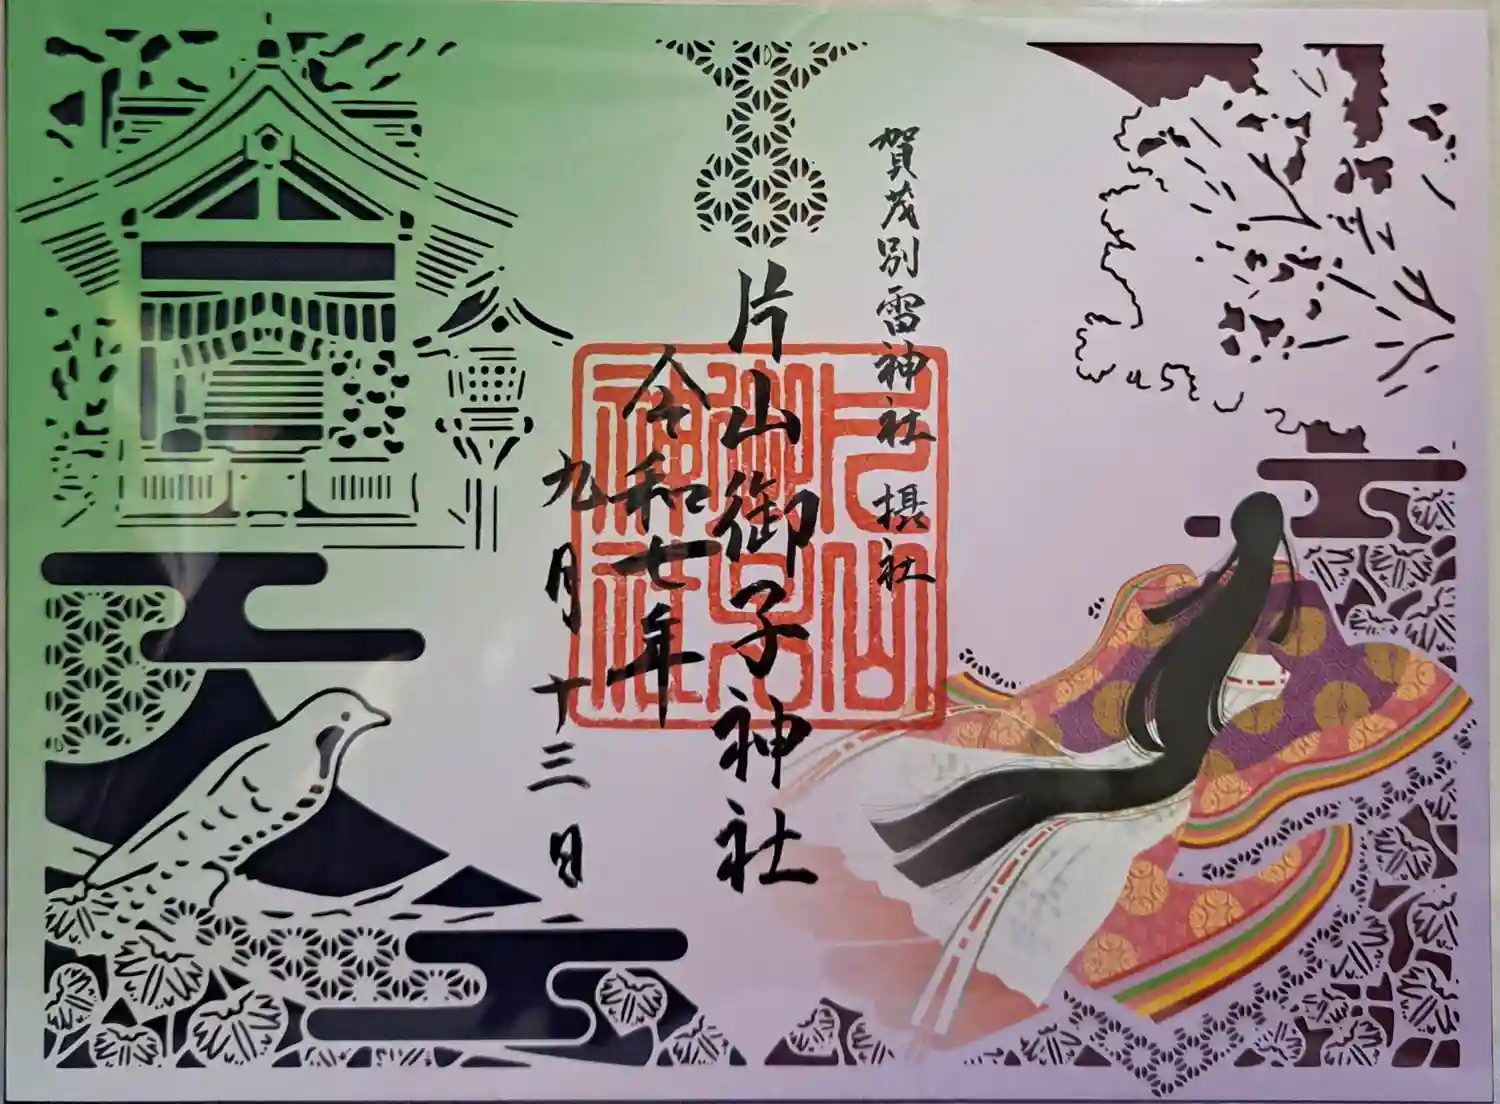 賀茂別雷神社 摂社
片山御子神社
令和七年
九月十三日
片山
御子
神社